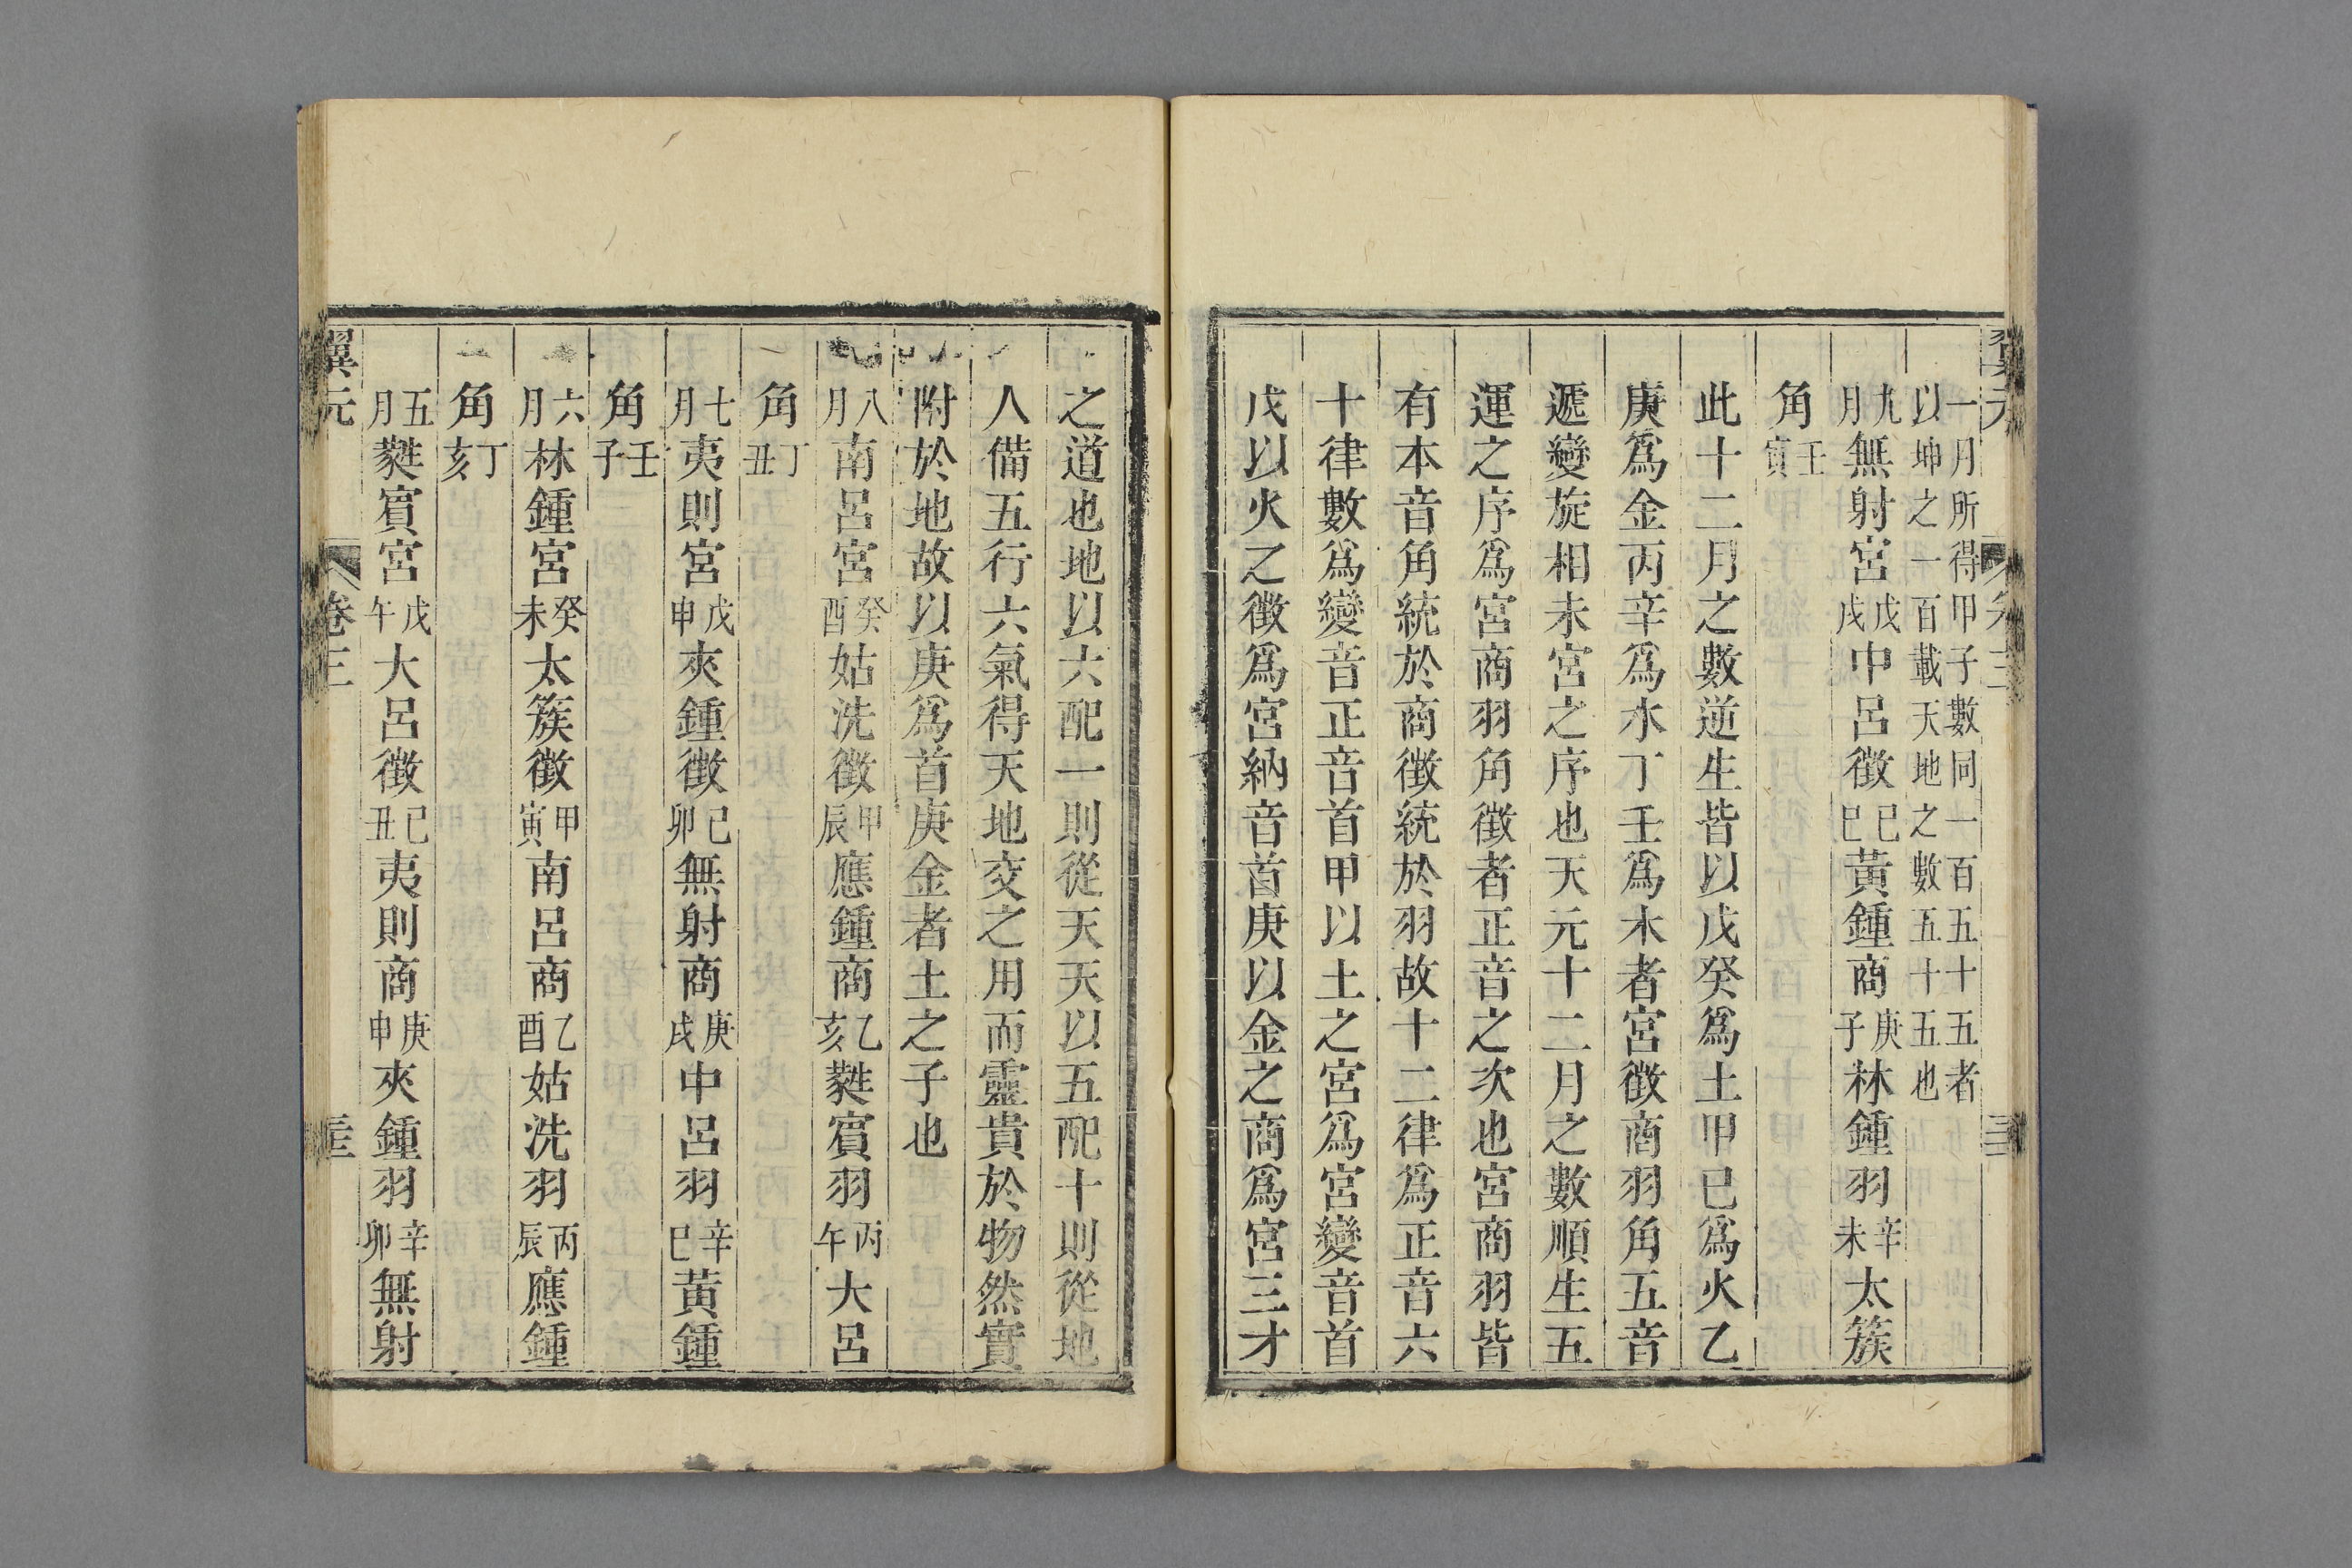 一月所得甲子數同一百五十五者
以坤之一百載天地之數五十五也
九月無射宮戊戌中呂徵己巳黃鍾商庚子林鍾羽辛未太簇
角壬寅
此十二月之數逆生皆以戊癸爲土甲己爲火乙
庚爲金丙辛爲水丁壬爲木者宮徵商羽角五音
遞變旋相未宮之序也天元十二月之數順生五
運之序爲宮商羽角徵者正音之次也宮商羽皆
有本音角統於商徵統於羽故十二律爲正音六
十律數爲變音正音首甲以土之宮爲宮變音首
戊以火之徵爲宮納音首庚以金之商爲宮三才
之道也地以六配一則從天天以五配十則從地
人備五行六氣得天地交之用而靈貴於物然實
附於地故以庚爲首庚金者土之子也
八月南呂宮癸酉姑洗徵甲辰應鍾商乙亥蕤賓羽丙午大呂
角丁丑
七月夷則宮戊申夾鍾徵己卯無射商庚戌中呂羽辛巳黃鍾
角壬子
六月林鍾宮癸未太簇徵甲寅南呂商乙酉姑洗羽丙辰應鍾
角丁亥
五月蕤賓宮戊午大呂徵己丑夷則商庚申夾鍾羽辛卯無射
翼元 卷三